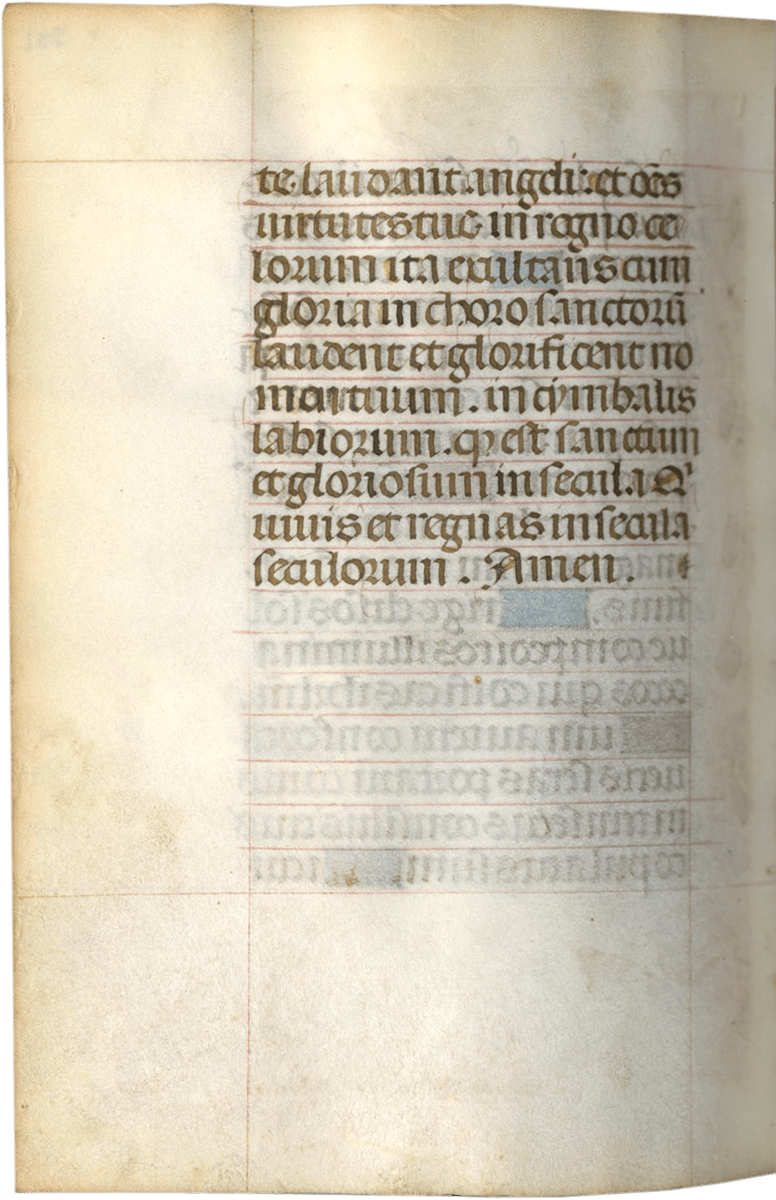 te laudant angeli: et oe̅s
uirtutes tue in regno ce
lorum ita exultans cum
gloria in choro sanctoru̅
laudent et glorificent no
men tuum. in cymbalis
labiorum. qꝫ est sanctum
et gloriosum in secula Q'
uiuis et regnas in secula
seculorum. Amen.